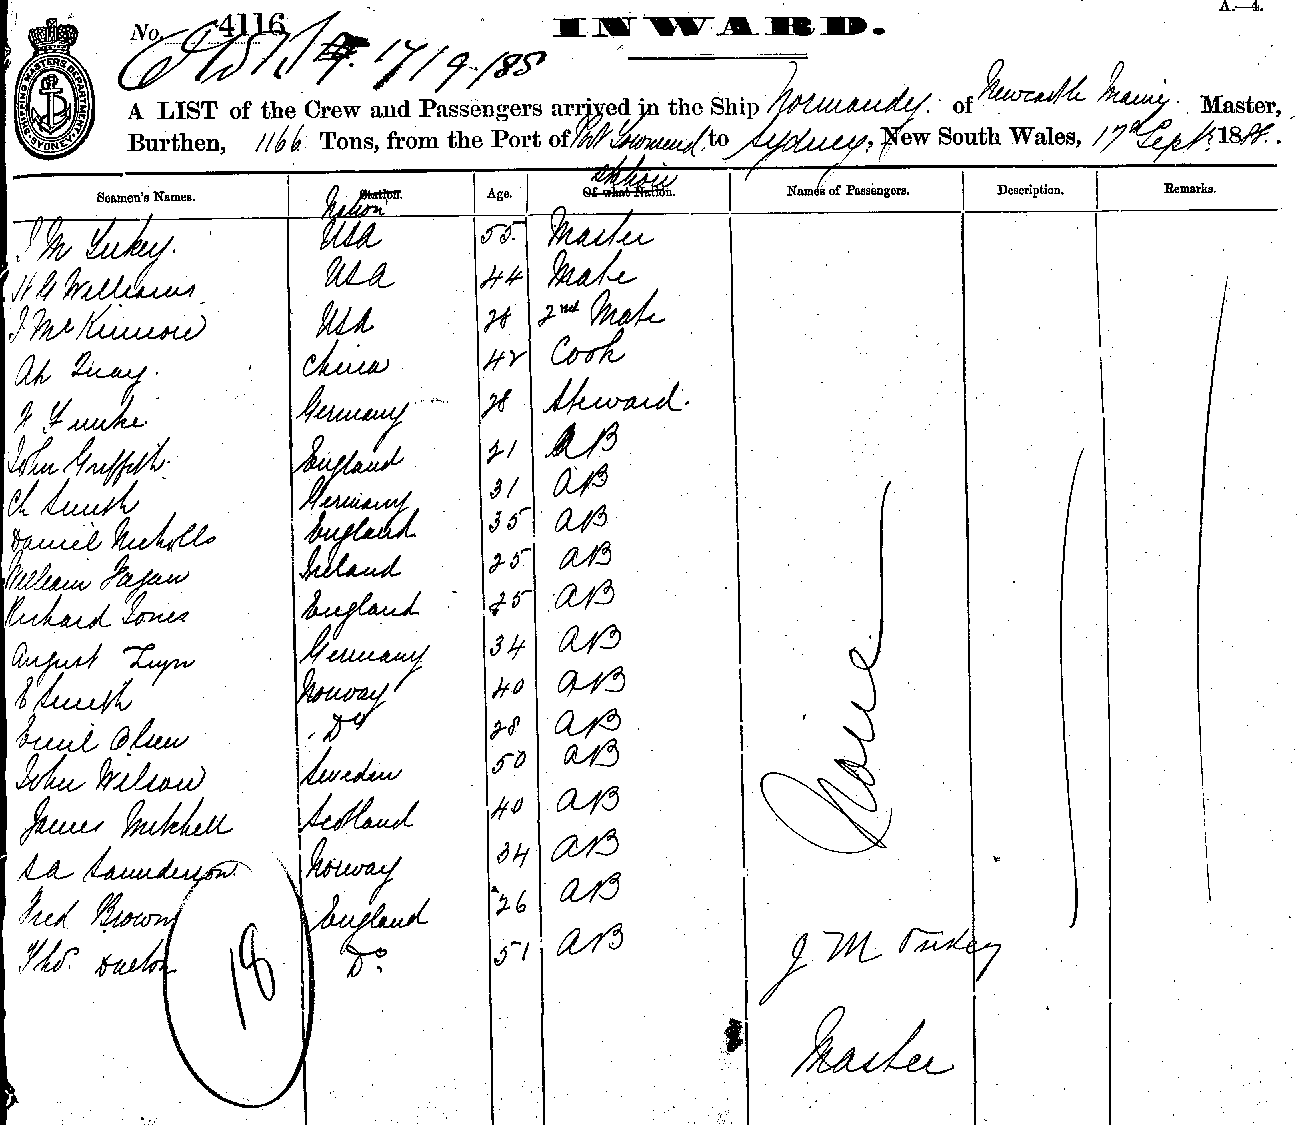 A.—4.
No. 4116
INWARD.
17/9/88
SHIPPING MASTERS DEPARTMENT SYDNEY
A LIST of the Crew and Passengers arrived in the Ship Normandy. of Newcastle Maine. Master,
Burthen, 1166 Tons, from the Port of Port Townsend to Sydney, New South Wales, 17th Sept. 1888.
Seamen's Names. Station. Nation Age. Of what Nation. Station Names of Passengers. Description. Remarks.
J M USA 55. Master
H G Williams USA 44 Mate
J McKinnon USA 28 2nd Mate
Ah Quay. China 42 Cook
Germany 28 Steward.
John Griffith. England 21 AB
Ch Smith Germany 31 AB
Daniel Nicholls England 35 AB
William Fagan Ireland 25 AB
Richard Jones England 25 AB
August Germany 34 AB
E Smith Norway 40 AB
Emil Olsen Do 28 AB
John Wilson Sweden 50 AB
James Mitchell Scotland 40 AB
SA Saunderson Norway 34 AB
Fred Brown England 26 AB
Thos. Do. 51 AB
18
None
J M
Master